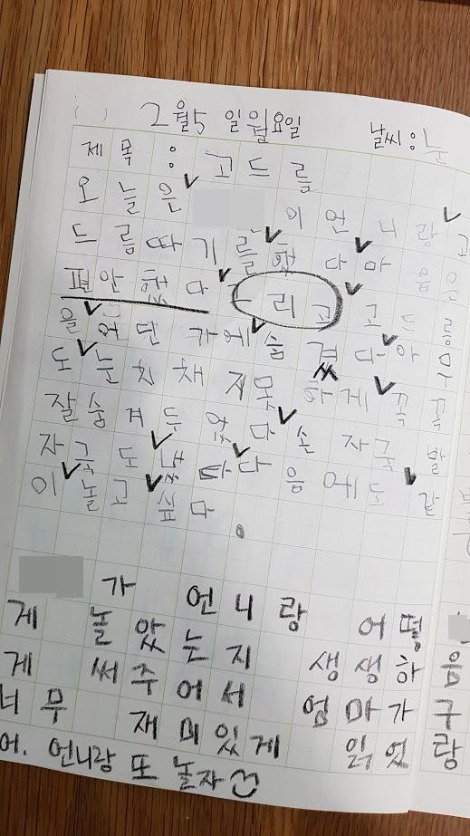 ( ) 2월5 일월요일 날씨:눈
제목 : 고드름
오늘은 이언니랑고
드름따기를했다마음은
편안했다 리고 고드름
을어던가에숨겼다아무
도눈치채지못하게꼭꼭
잘숨겨두었다손자국발
자국도냈다다음에도같
이놀고싶다.
가 언니랑 어떻
게 놀았는지 생생하
게 써주어서 엄마가
너무 재미있게 읽었
어. 언니랑 또 놀자